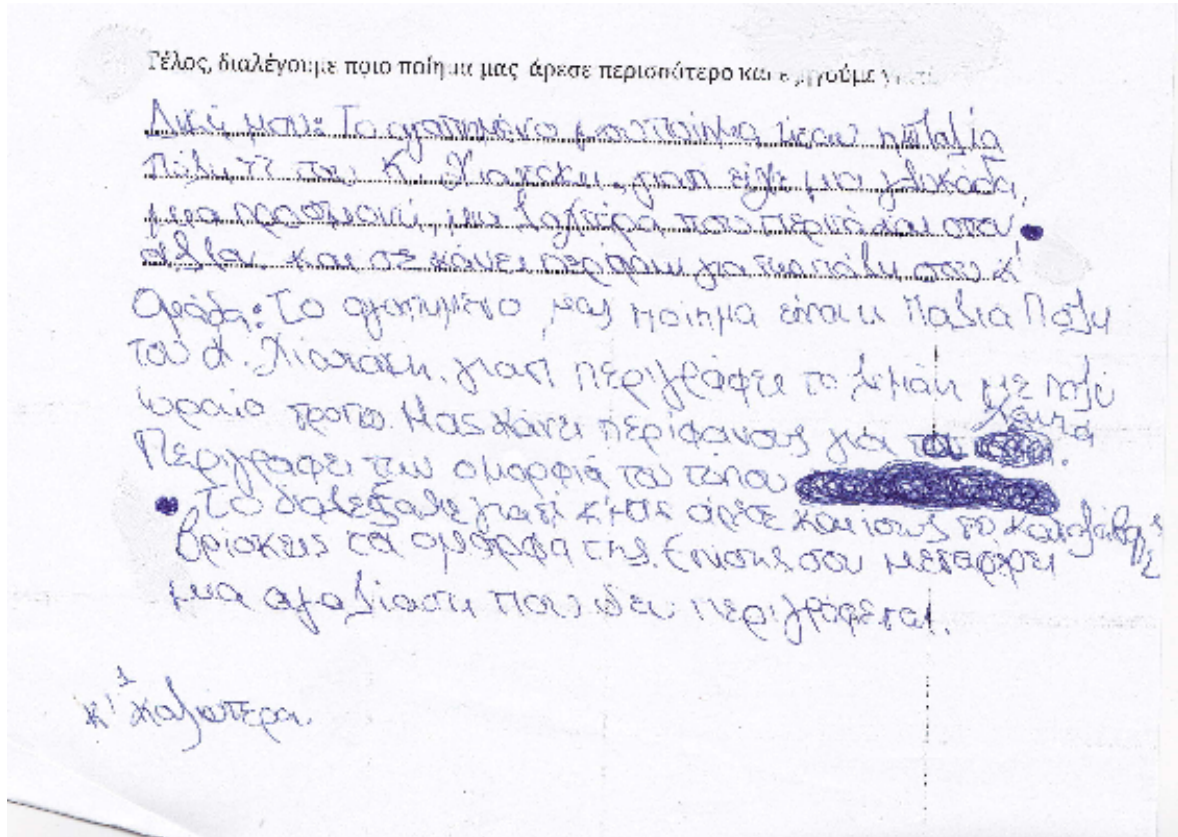 Τέλος, διαλέγουμε ποιο ποίημα μας άρεσε περισσότερο και εξηγούμε γιατί
Δική μου: Το αγαπημένο μου ποίημα ήταν η Παλιά
Πόλη του Κ. γιατί είχε μια γλυκάδα,
μια που περνά και στα
και σε κάνει για την πόλη σου κ'
Ομάδα: Το αγαπημένο μας ποίημα είναι η Παλιά Πόλη
του γιατί περιγράφει το λιμάνι με πολύ
ωραίο τρόπο. Μας κάνει περίφανους για τα Χανιά.
Περιγράφει την ομορφιά του τόπου
Το διαλέξαμε γιατί άρεσε και ίσως
βρίσκεις τα όμορφα της. Επίσης σου μεταφέρει
μια αγαλίαση που δεν περιγράφεται.
κ' 1 καλύτερα.